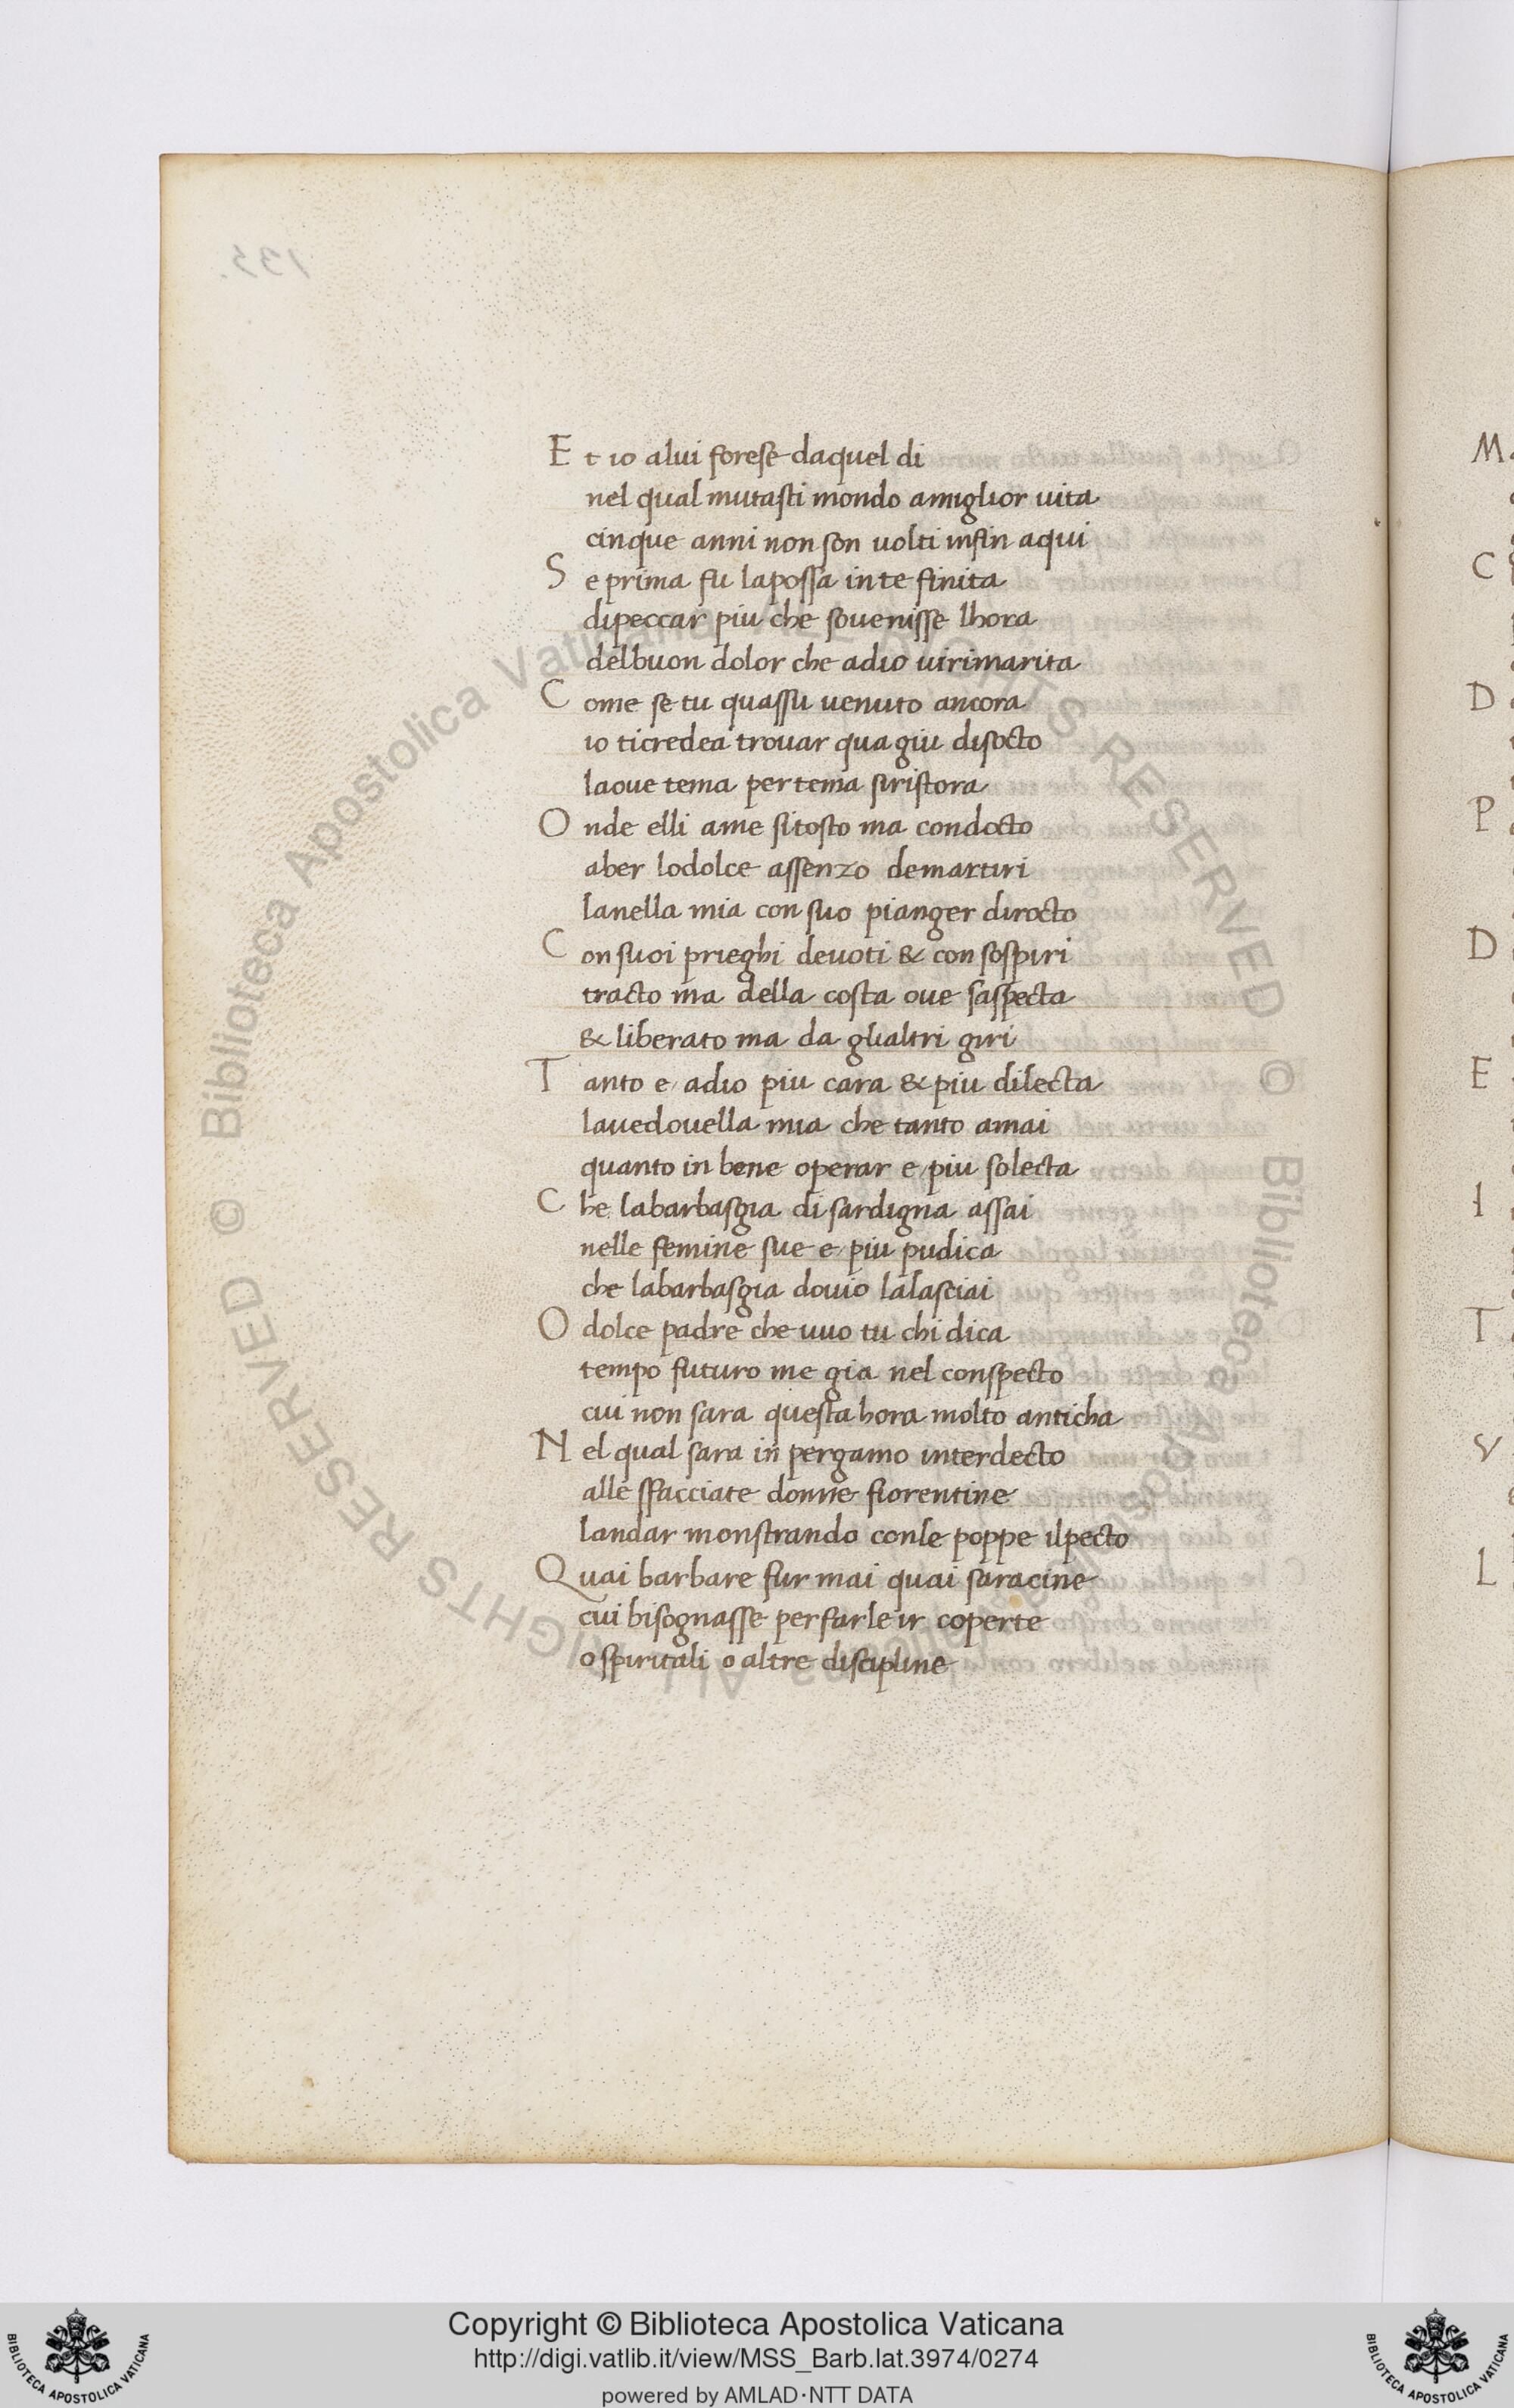 Et io alui forese daquel di
nel qual mutasti mondo amiglior uita
cinque anni non son uolti infin aqui
Se prima fu lapossa in te finita
dipeccar piu che souenisse lhora
delbuon dolor che adio uirimarita
Come se tu quassu uenuto ancora
io ticredea trouar qua giu disocto
laoue tema per tema siristora
Onde elli ame sitosto ma condocto
aber lodolce assenzo demartiri
lanella mia con suo pianger dirocto
Con suoi prieghi deuoti & con sospiri
tracto ma della costa oue saspecta
& liberato ma da glialtri giri
Tanto e adio piu cara & piu dilecta
lauedouella mia che tanto amai
quanto in bene operar e piu solecta
Che labarbasgia di sardigna assai
nelle femine sue e piu pudica
che labarbasgia douio lalasciai
O dolce padre che uuo tu chi dica
tempo futuro me gia nel conspecto
cui non sara questa hora molto anticha
Nel qual sara in pergamo interdecto
alle sfacciate donne fiorentine
landar monstrando conle poppe ilpecto
Quai barbare fur mai quai saracine
cui bisognasse per farle ir coperte
o spiritali o altre discipline
M
C
D
P
D
E
I
T
V
L
© Biblioteca Apostolica Vaticana ALL RIGHTS RESERVED © Biblioteca Apostolica Vaticana ALL RIGHTS RESERVED
Copyright © Biblioteca Apostolica Vaticana
http://digi.vatlib.it/view/MSS_Barb.lat.3974/0274
powered by AMLAD·NTT DATA
BIBLIOTECA APOSTOLICA VATICANA
BIBLIOTECA APOSTOLICA VATICANA